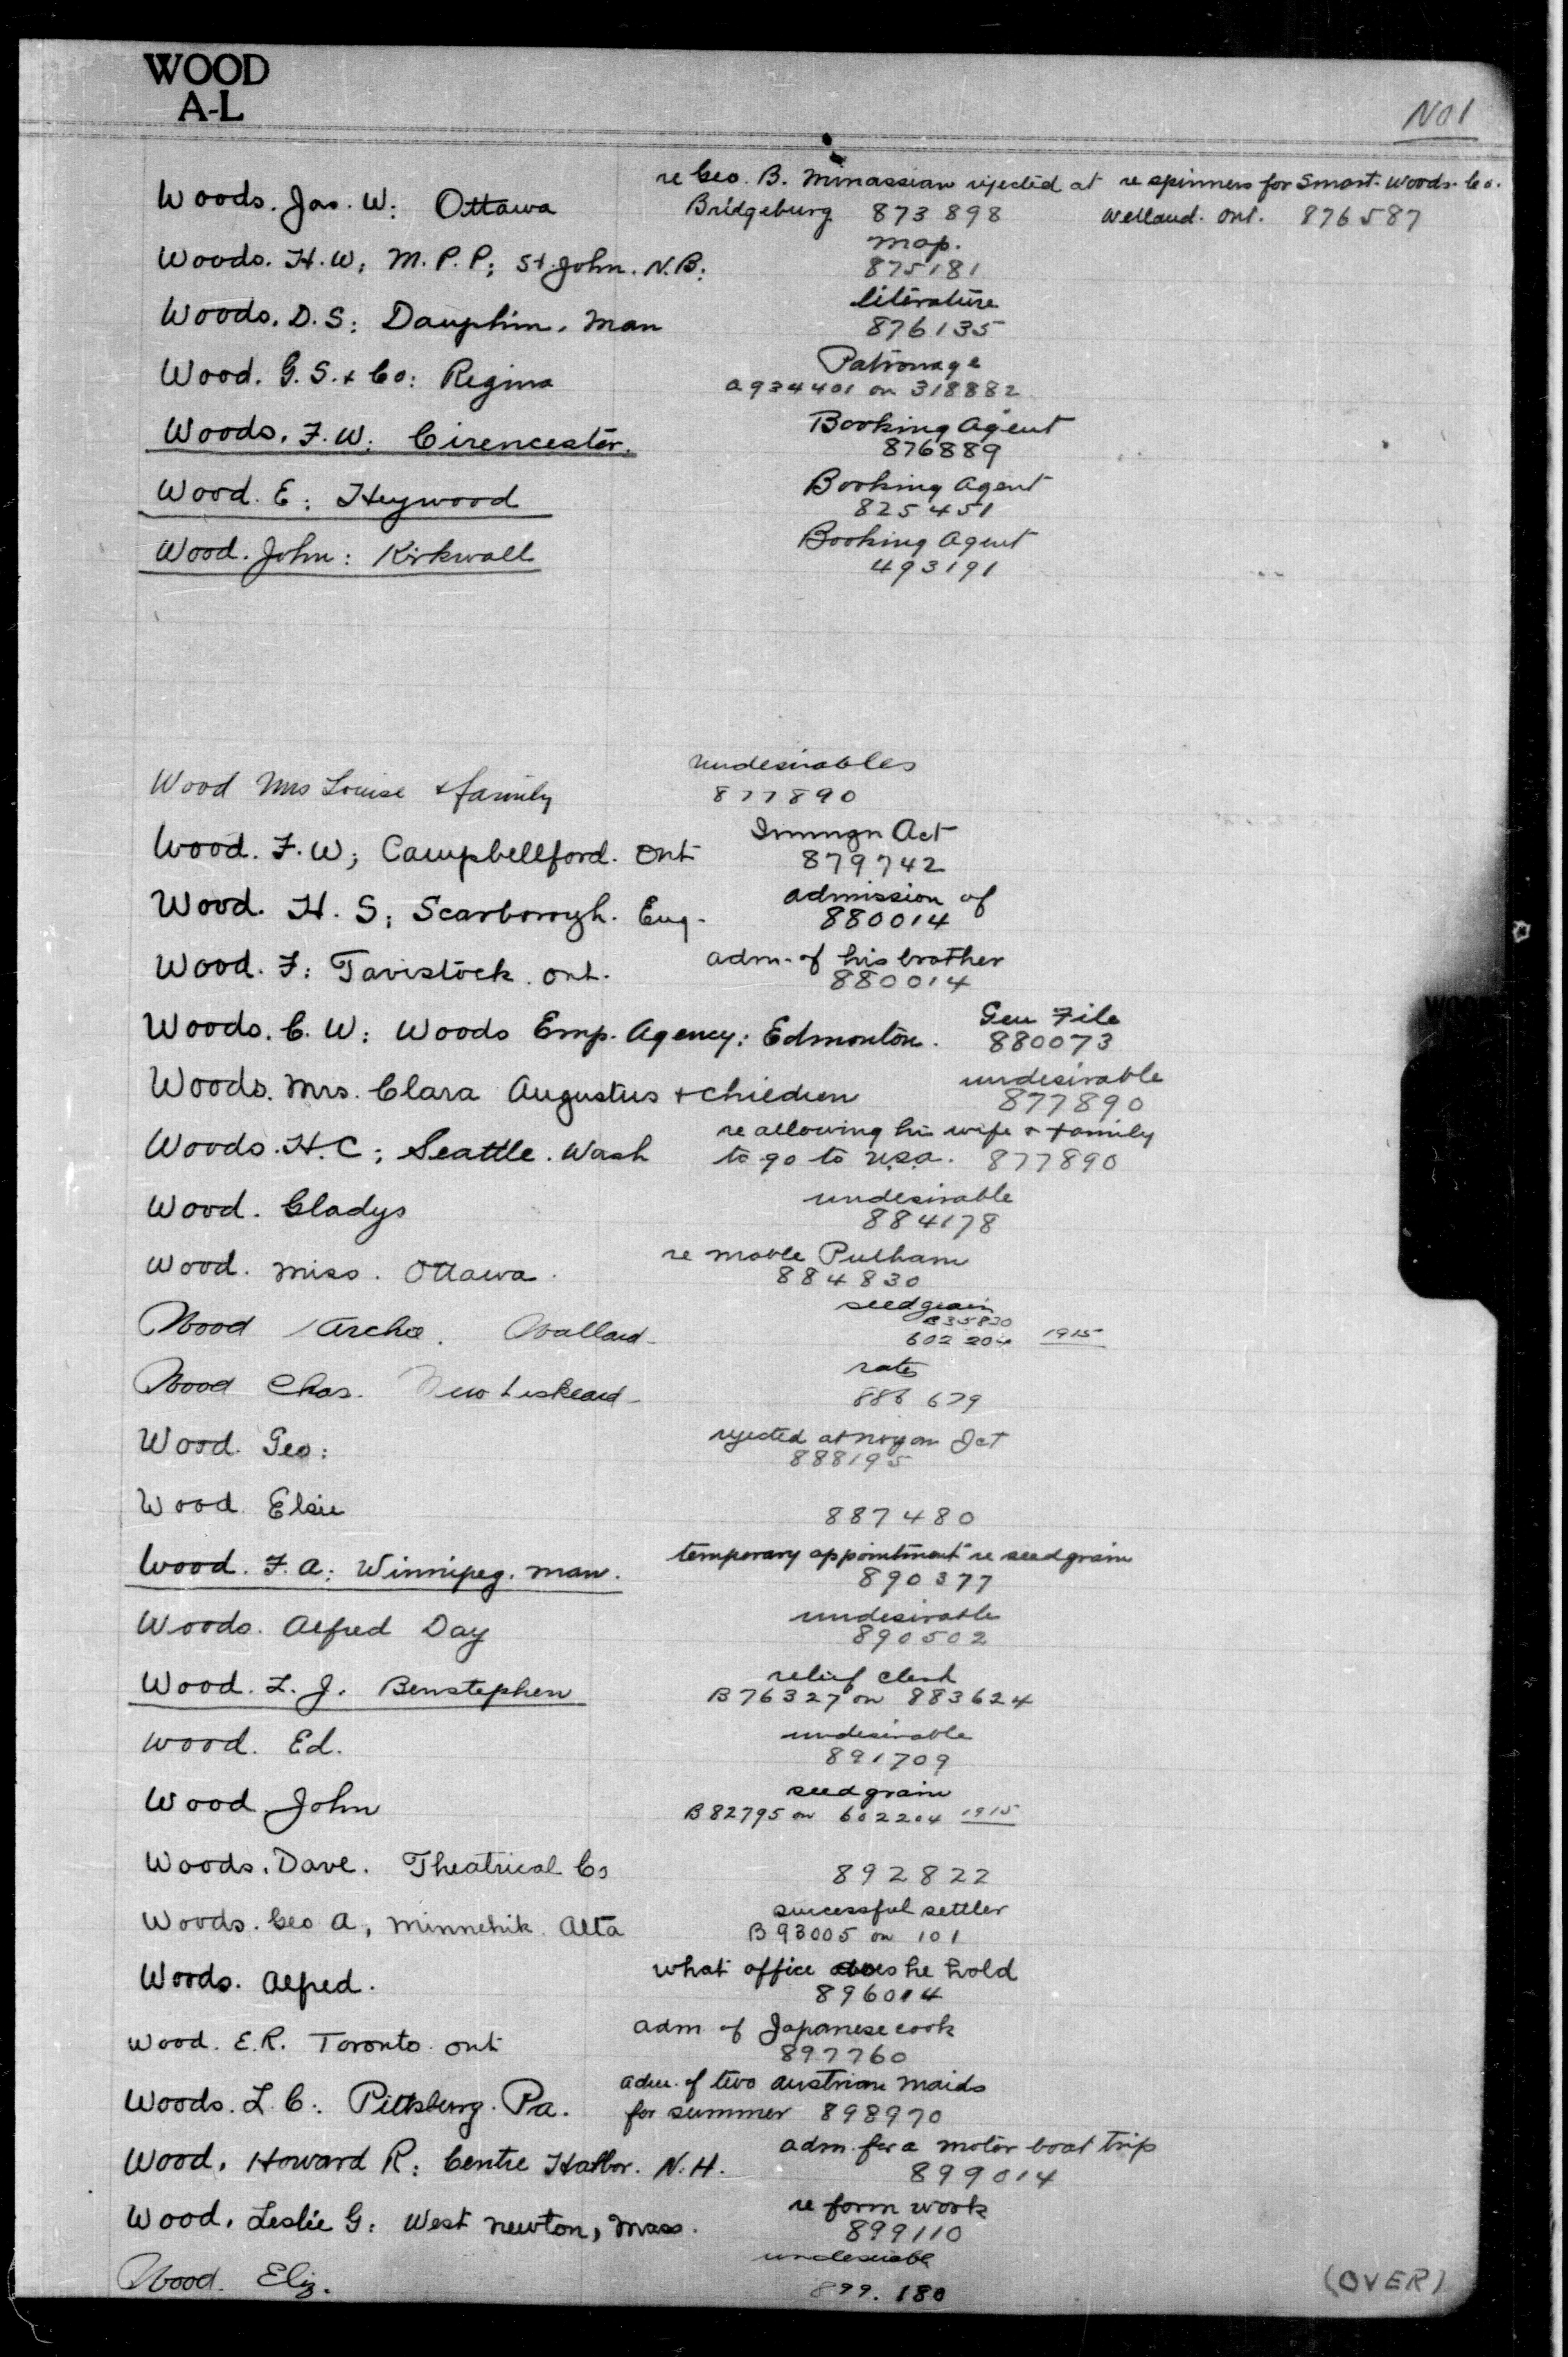 WOOD
A-L
NO1
re Geo. B. Minassian rejected at re spinners for Smart-Woods-Co.
Woods. Jas. W: Ottawa Bridgeburg 873898 Welland. Ont. 876587
map.
Woods. H.W; M.P.P; St. John. N.B: 875181
literature
Woods. D.S: Dauphin. Man 876135
Patronage
Wood. G.S. & Co: Regina a934401 on 318882
Booking Agent
Woods. F.W: Cirencester. 876889
Booking Agent
Wood. E: Heywood 825451
Booking Agent
Wood. John: Kirkwall 493191
undesirables
Wood Mrs Louise & family 877890
Immgn Act
Wood. F.W; Campbellford. Ont 879742
admission of
Wood. H.S; Scarborough. Eng. 880014
adm. of his brother
Wood. F: Tavistock. Ont. 880014
Gen File
Woods. C.W: Woods Emp. Agency: Edmonton. 880073
undesirable
Woods. Mrs. Clara Augustus & children 877890
re allowing his wife & family
Woods. H.C; Seattle. Wash to go to U.S.A. 877890
undesirable
Wood. Gladys 884178
re Mable Pulham
Wood. Miss. Ottawa. 884830
seed grain
B35820
Wood Archie. 602204 1915
rates
Wood Chas. New Liskeard 886679
rejected at Noyan Jct
Wood. Geo: 888195
Wood. Elsie 887480
temporary appointment re seed grain
Wood. F.A: Winnipeg. Man. 890377
undesirable
Woods. Alfred Day 890502
relief clerk
Wood. L.J. Benstephen B76327 on 883624
undesirable
Wood. Ed. 891709
seed grain
Wood John B82795 on 602204 1915
Woods. Dave. Theatrical Co 892822
successful settler
Woods. Geo A, Minnehik. Alta B93005 on 101
what office does he hold
Woods. Alfred. 896014
adm of Japanese cook
Wood. E.R. Toronto. Ont 897760
adm. of two Austrian maids
Woods. L.C: Pittsburg. Pa. for summer 898970
adm. for a motor boat trip
Wood. Howard R: Centre Harbor. N.H. 899014
re farm work
Wood. Leslie G: West Newton, Mass. 899110
undesirable
Wood. Eliz. 899.180
(OVER)